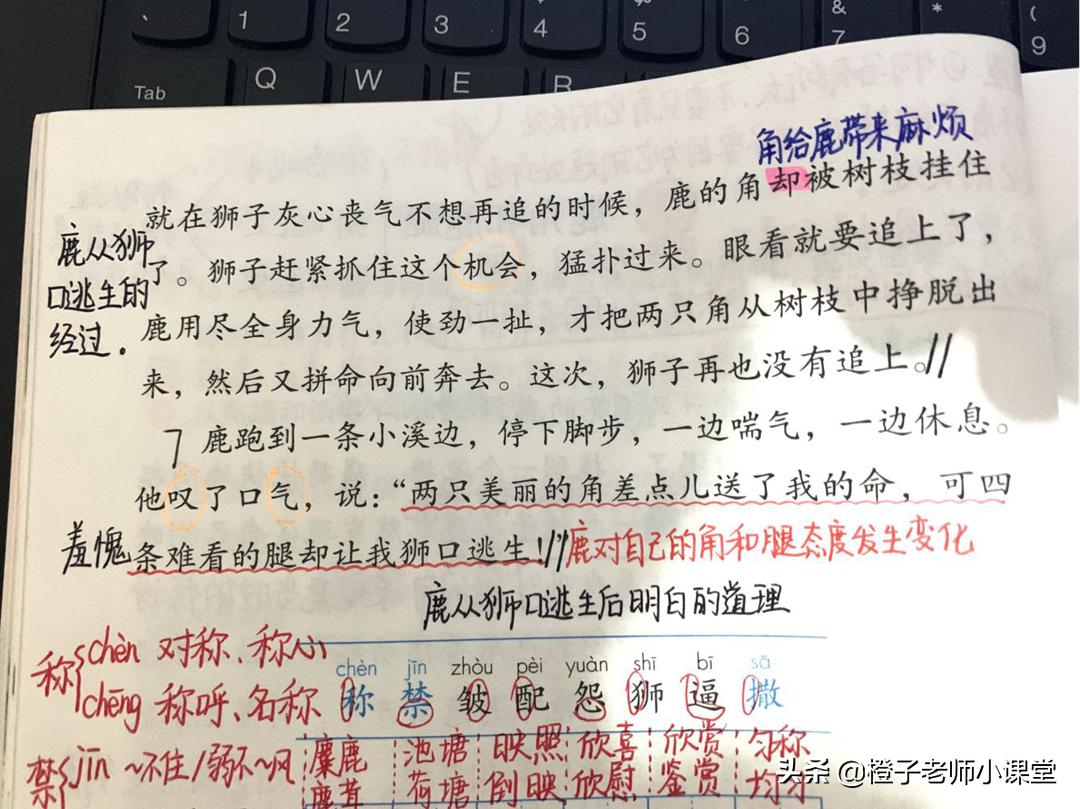 1 2 3 4 5 6 & 7 * 8 ( 9
Tab Q W E R
角给鹿带来麻烦
就在狮子灰心丧气不想再追的时候，鹿的角却被树枝挂住
了。狮子赶紧抓住这个机会，猛扑过来。眼看就要追上了，
鹿用尽全身力气，使劲一扯，才把两只角从树枝中挣脱出
来，然后又拼命向前奔去。这次，狮子再也没有追上。//
鹿从狮
口逃生的
经过.
7 鹿跑到一条小溪边，停下脚步，一边喘气，一边休息。
他叹了口气，说：“两只美丽的角差点儿送了我的命，可四
条难看的腿却让我狮口逃生！”//
羞愧
鹿对自己的角和腿态度发生变化
鹿从狮口逃生后明白的道理
称 chèn 对称、称心
chēng 称呼、名称
禁 jīn ~不住/弱不~风
chèn jīn zhòu pèi yuàn shī bī sā
称 禁 皱 配 怨 狮 逼 撒
麋鹿 池塘 映照 欣喜 欣赏 匀称
鹿茸 荷塘 倒映 欣慰 鉴赏 均匀
头条 @橙子老师小课堂